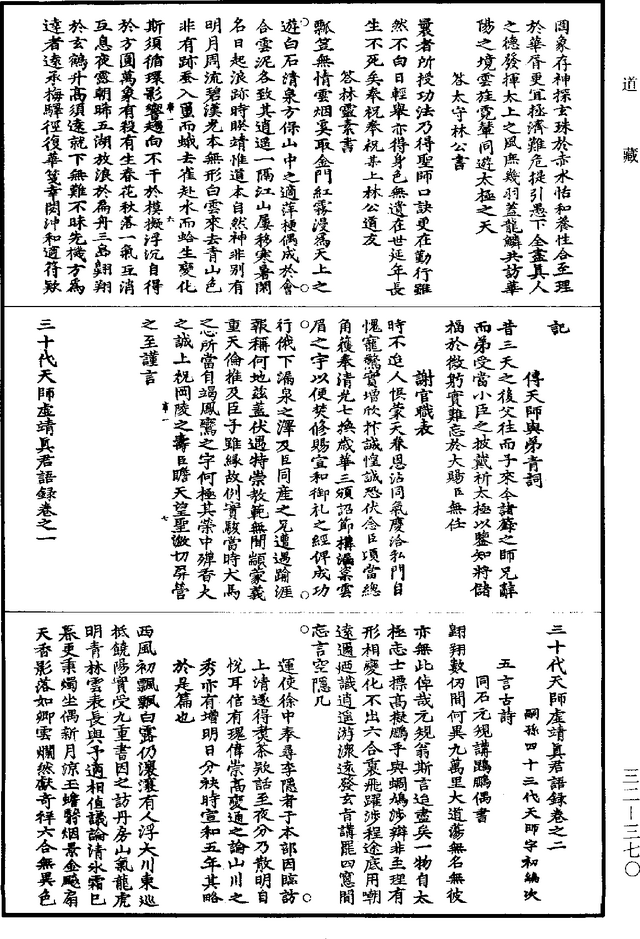 道藏
罔象存神探玄珠於赤水怡和養性合至理
於華胥更宜極濟難危提引愚下全盡真人
之德發揮太上之風庶幾羽蓋龍鱗共訪華
陽之境雲旌霓輦同遊太極之天
答太守林公書
曩者所授功法乃得聖師口訣更在勤行雖
然不向日輕舉亦得身色無遺在世延年長
生不死矣奉祝奉祝甚上林公道友
答林靈素書
瓢笠無情雲烟莫取金門紅霧漫為天上之
遊白石清泉方保山中之適萍梗偶成於會
合雲泥各致其逍遙一隔江山屢移寒暑閑
名日起浪跡時暌靖惟道本自然神非別有
明月周流碧漢光本無形白雲來去青山色
非有跡蚕入繭而蛾去雀赴水而蛤生變化
斯須循環影響趨向不干於模擬浮沉自得
於方圓萬象有殺有生春花秋落一氣互消
互息夜露朝晞五湖放浪於扁舟三島翺翔
於玄鶴升高須遠就下無難不昧先機方為
達者遠承梅驛徑復華箋幸閔沖和適符欵
記
傳天師與弟青詞
昔三天之後父往而子來今諸薛之師兄辭
而弟受當小臣之披戴祈太極以鑒知將儲
福於微躬實難忘於大賜臣無任
謝官職表
時不迨人俱蒙天眷恩沾同氣慶洽私門自
愧寵驚實增欣忭誠惶誠恐伏念臣頃當總
角獲奉清光七換歲華三頒詔節構𣿬蘂雲
眉之宇以便焚修賜宣和御札之經俾成功
行俄下漏泉之澤及臣同產之兄遭遇踰涯
報稱何地茲蓋伏遇特崇教範無間顓蒙義
重天倫推及臣子雖緣故例實駭當時犬馬
之心所當自竭鳳鸞之字何極其榮中殫香火
之誠上祝岡陵之壽臣瞻天望聖激切屏營
之至謹言
三十代天師虛靖真君語錄卷之一
三十代天師虛靖真君語錄卷之二
嗣孫四十三代天師宇初編次
五言古詩
同石元規講鵾鵬偶書
翺翔數仞間何異九萬里大道蕩無名無彼
亦無此倬哉元規翁斯言迨盡矣一物自太
極志士標高擬鵬乎與蜩鳩涉辯非至理有
形相變化不出六合裏飛躍涉程途底用嘲
遠邇迺識逍遙游濠遠發玄旨講罷四窻閒
忘言空隱几
運使徐中奉尋李隱者于本部因臨訪
上清遂得煑茶欵話至夜分乃散明日自
悅耳信有瓌偉崇高夐通之論山川之
秀亦有增明日分袂時宣和五年其略
於是篇也
西風初飄飄白露仍瀼瀼有人浮大川東巡
柢饒陽實受九重書因之訪丹房山氣龍虎
明青林雲表長與予適相值議論清氷霜已
暮更秉燭坐偶新月涼玉蟾翳烟景金飈扇
天香影落如卿雲爛然獻奇祥六合無異色
三二—三七〇